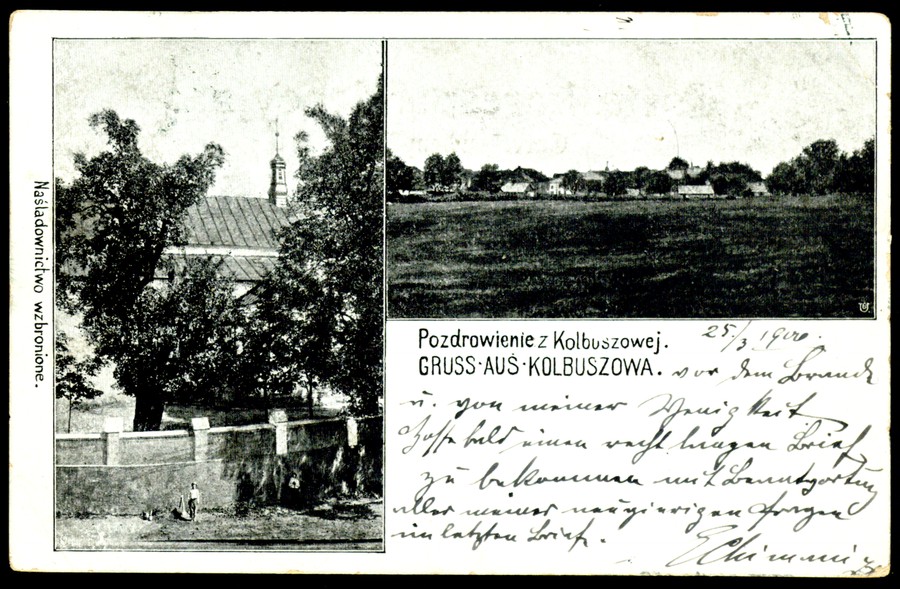 Naśladownictwo wzbronione.
Pozdrowienie z Kolbuszowej.
GRUSS·AUS·KOLBUSZOWA.
25/3 1900.
vor dem Brande
u. von meiner Wenigkeit
Hoffe bald einen recht langen Brief
zu bekommen mit Beantwortung
aller meiner neugierigen Fragen
im letzten Brief.